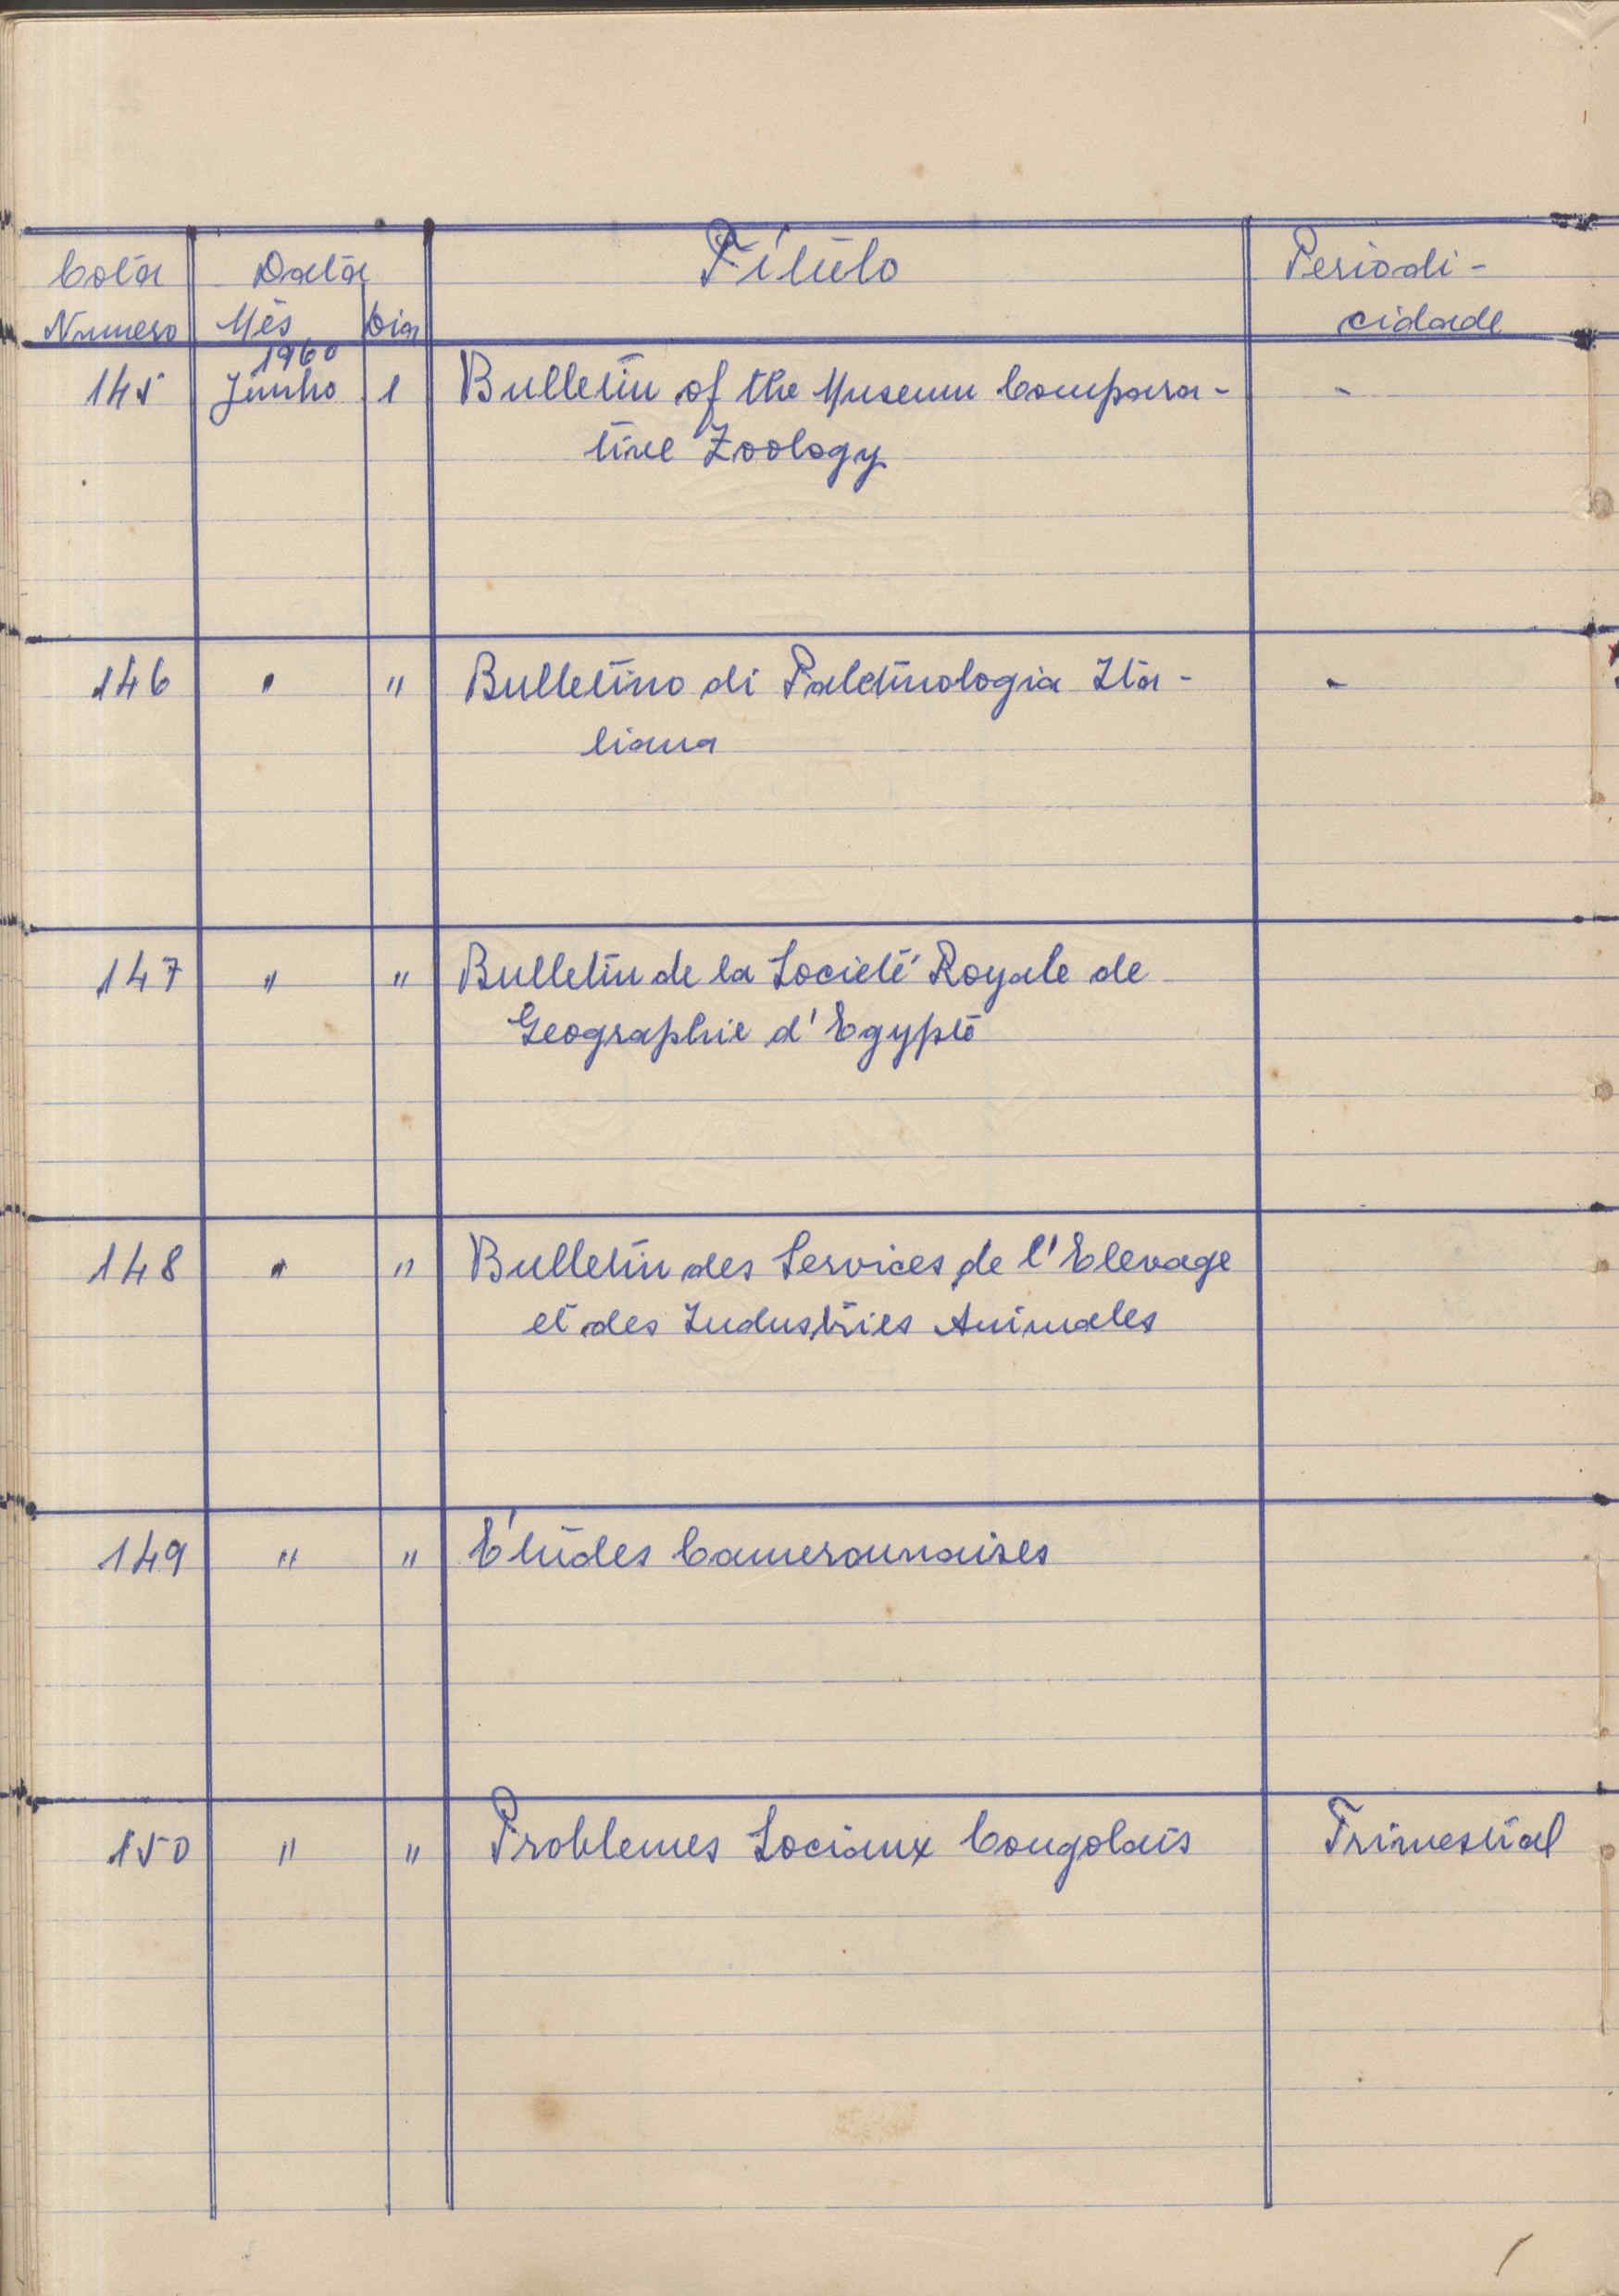 Cota Data Título Periodi-
Numero Mês Dia cidade
1960
145 Junho 1 Bulletin of the Museum Compara- -
tive Zoology
146 " " Bulletino di Paletnologia Ita- -
liana
147 " " Bulletin de la Societé Royale de
Geographie d'Egypte
148 " " Bulletin des Services de l'Elevage
et des Industries Animales
149 " " Études Camerounaises
150 " " Problemes Sociaux Congolais Trimestral